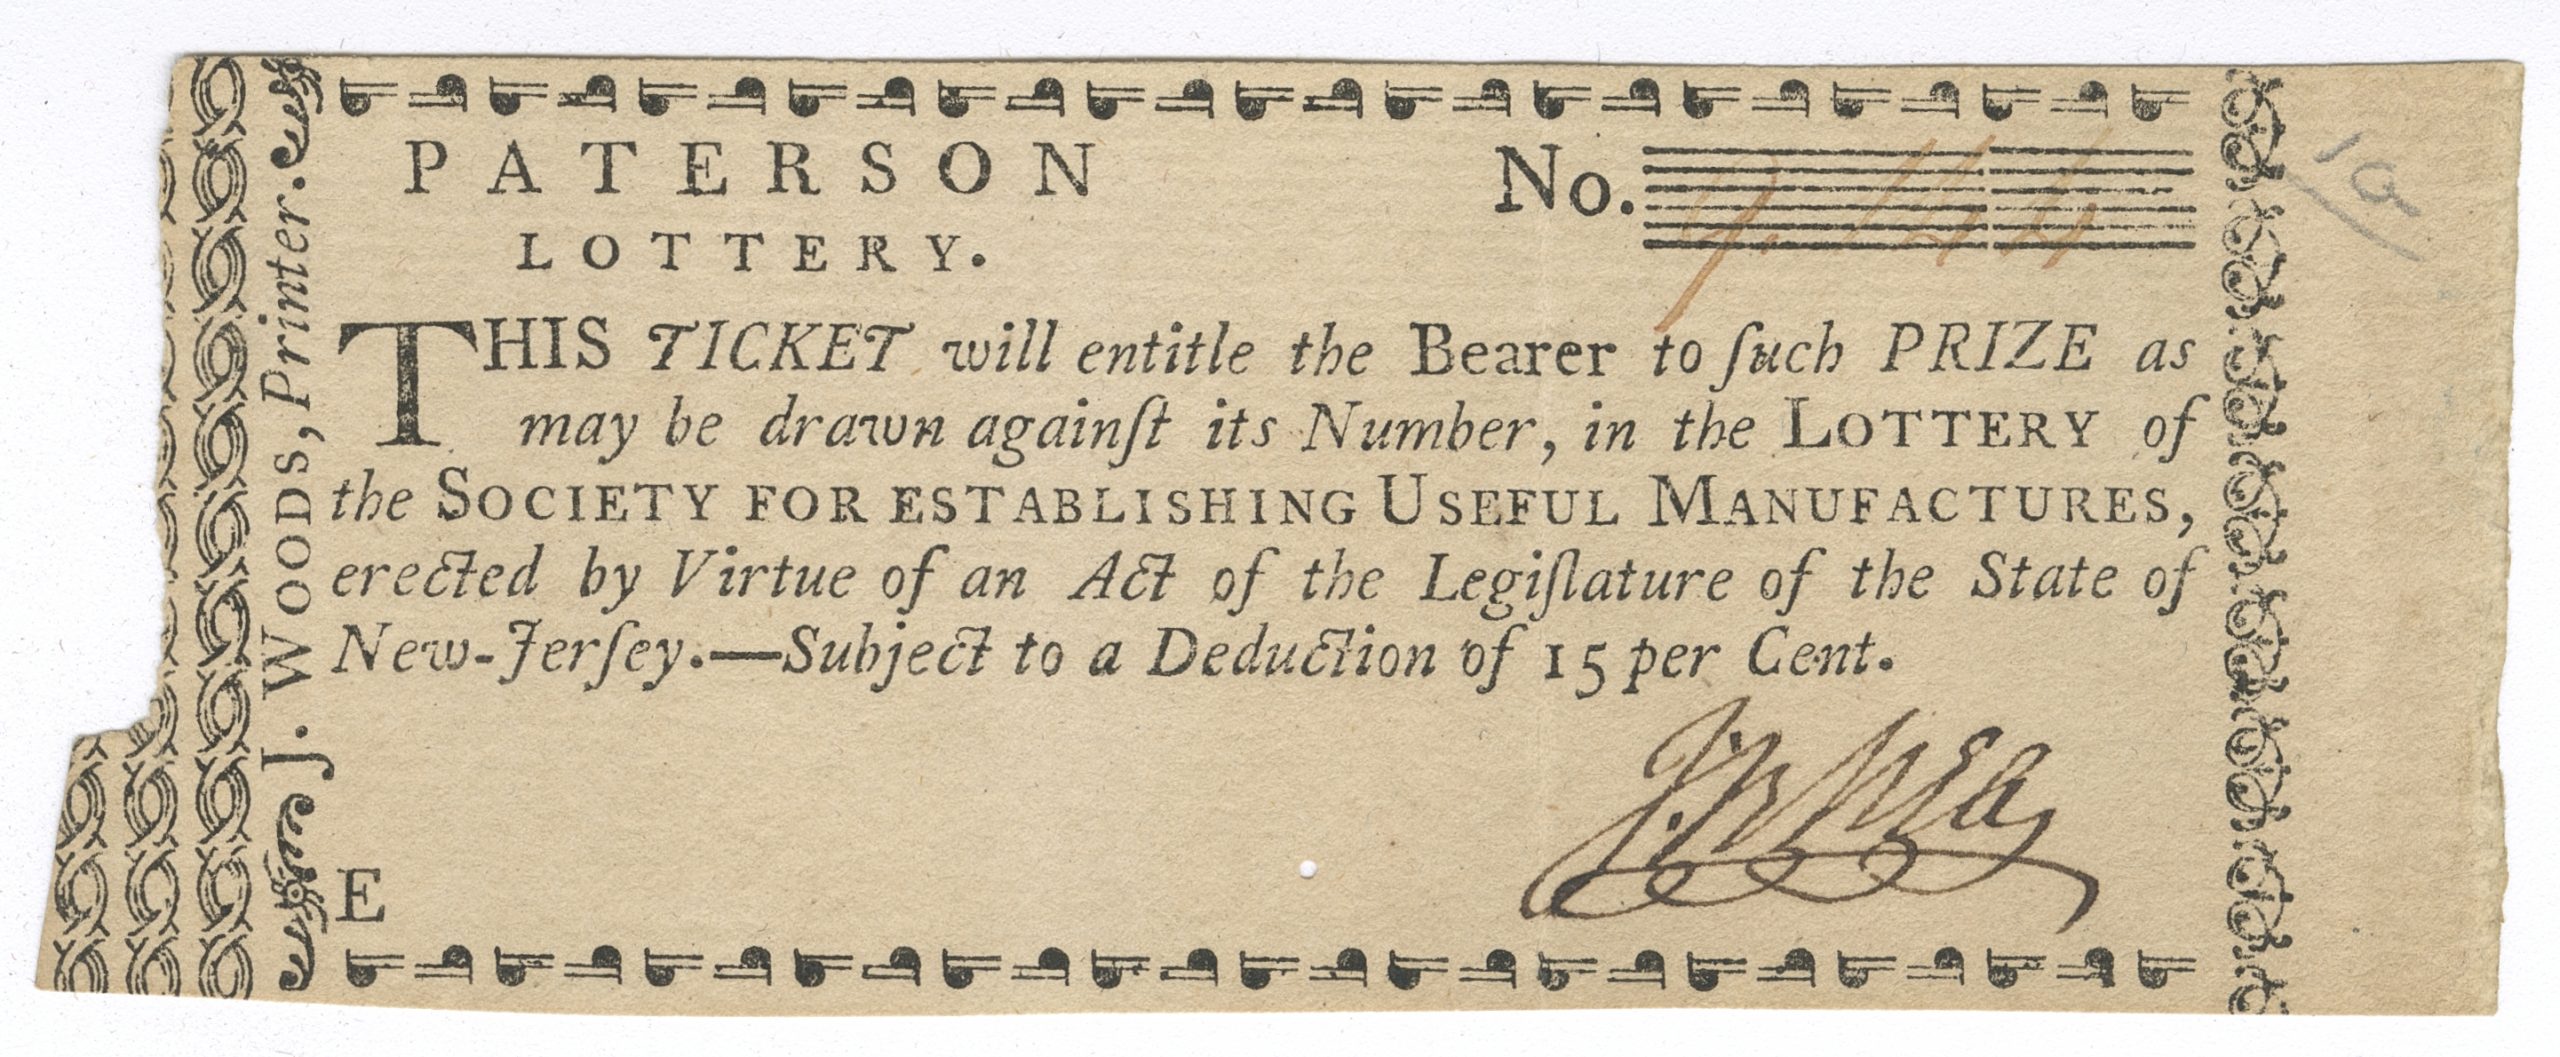 PATERSON
LOTTERY.
No. 9.144
THIS TICKET will entitle the Bearer to ſuch PRIZE as
may be drawn againſt its Number, in the LOTTERY of
the SOCIETY FOR ESTABLISHING USEFUL MANUFACTURES,
erected by Virtue of an Act of the Legiſlature of the State of
New-Jerſey.—Subject to a Deduction of 15 per Cent.
E
J. WOODS, Printer.